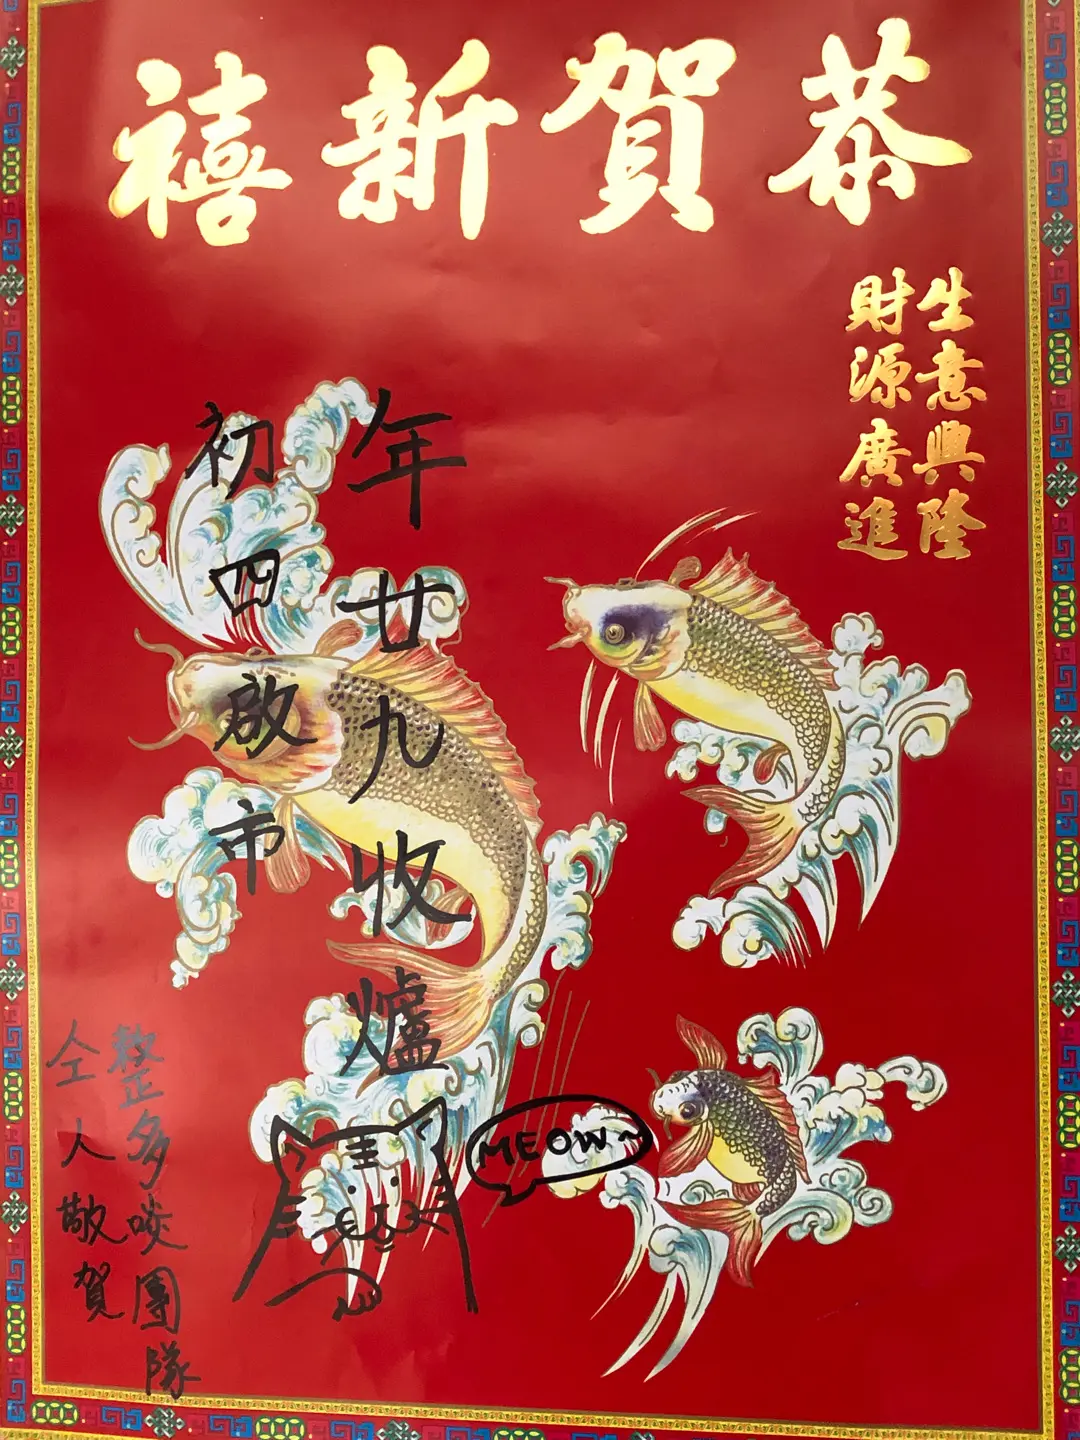 恭賀新禧
生意興隆
財源廣進
年廿九收爐
初四啟市
MEOW~
整多啖團隊
仝人敬賀